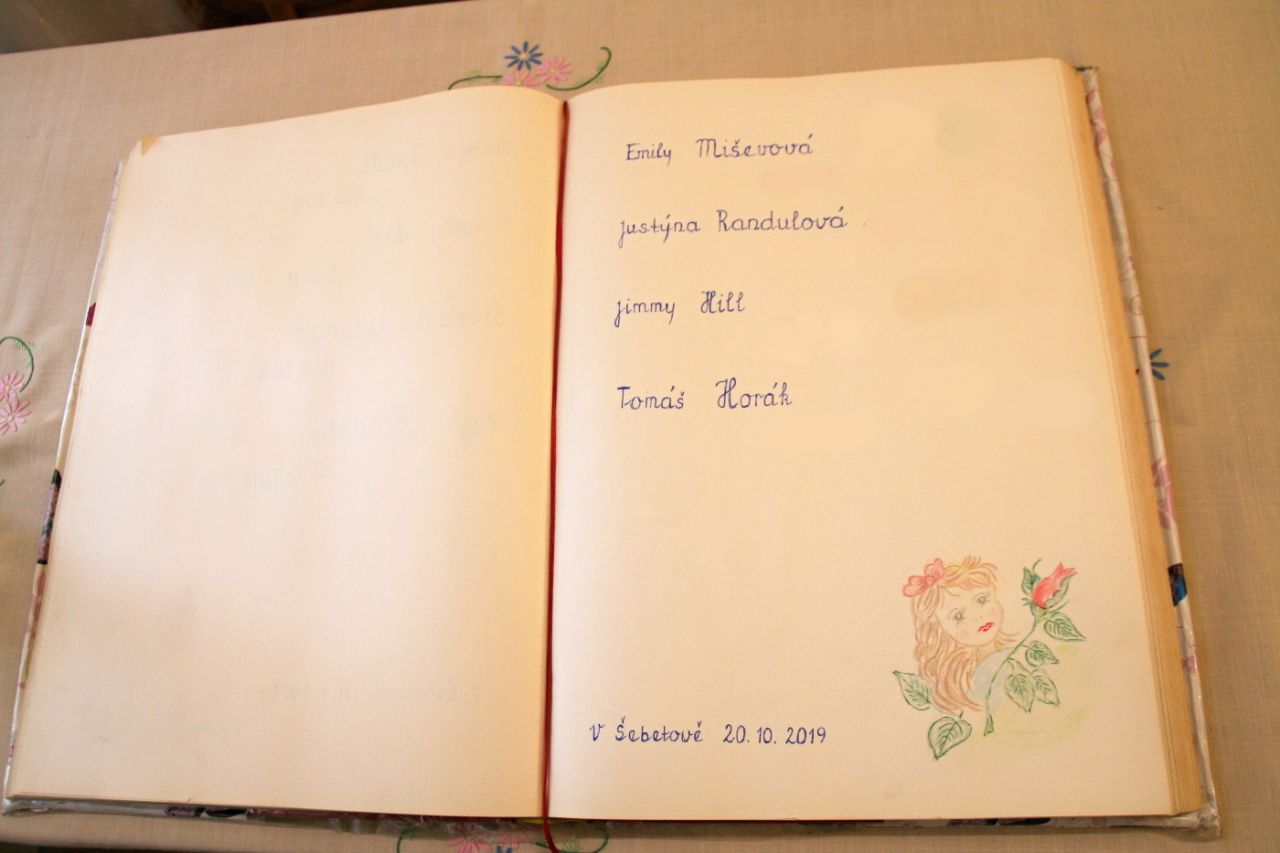 Emily Miševová
Justýna Randulová
Jimmy Hill
Tomáš Horák
V Šebetově 20.10.2019